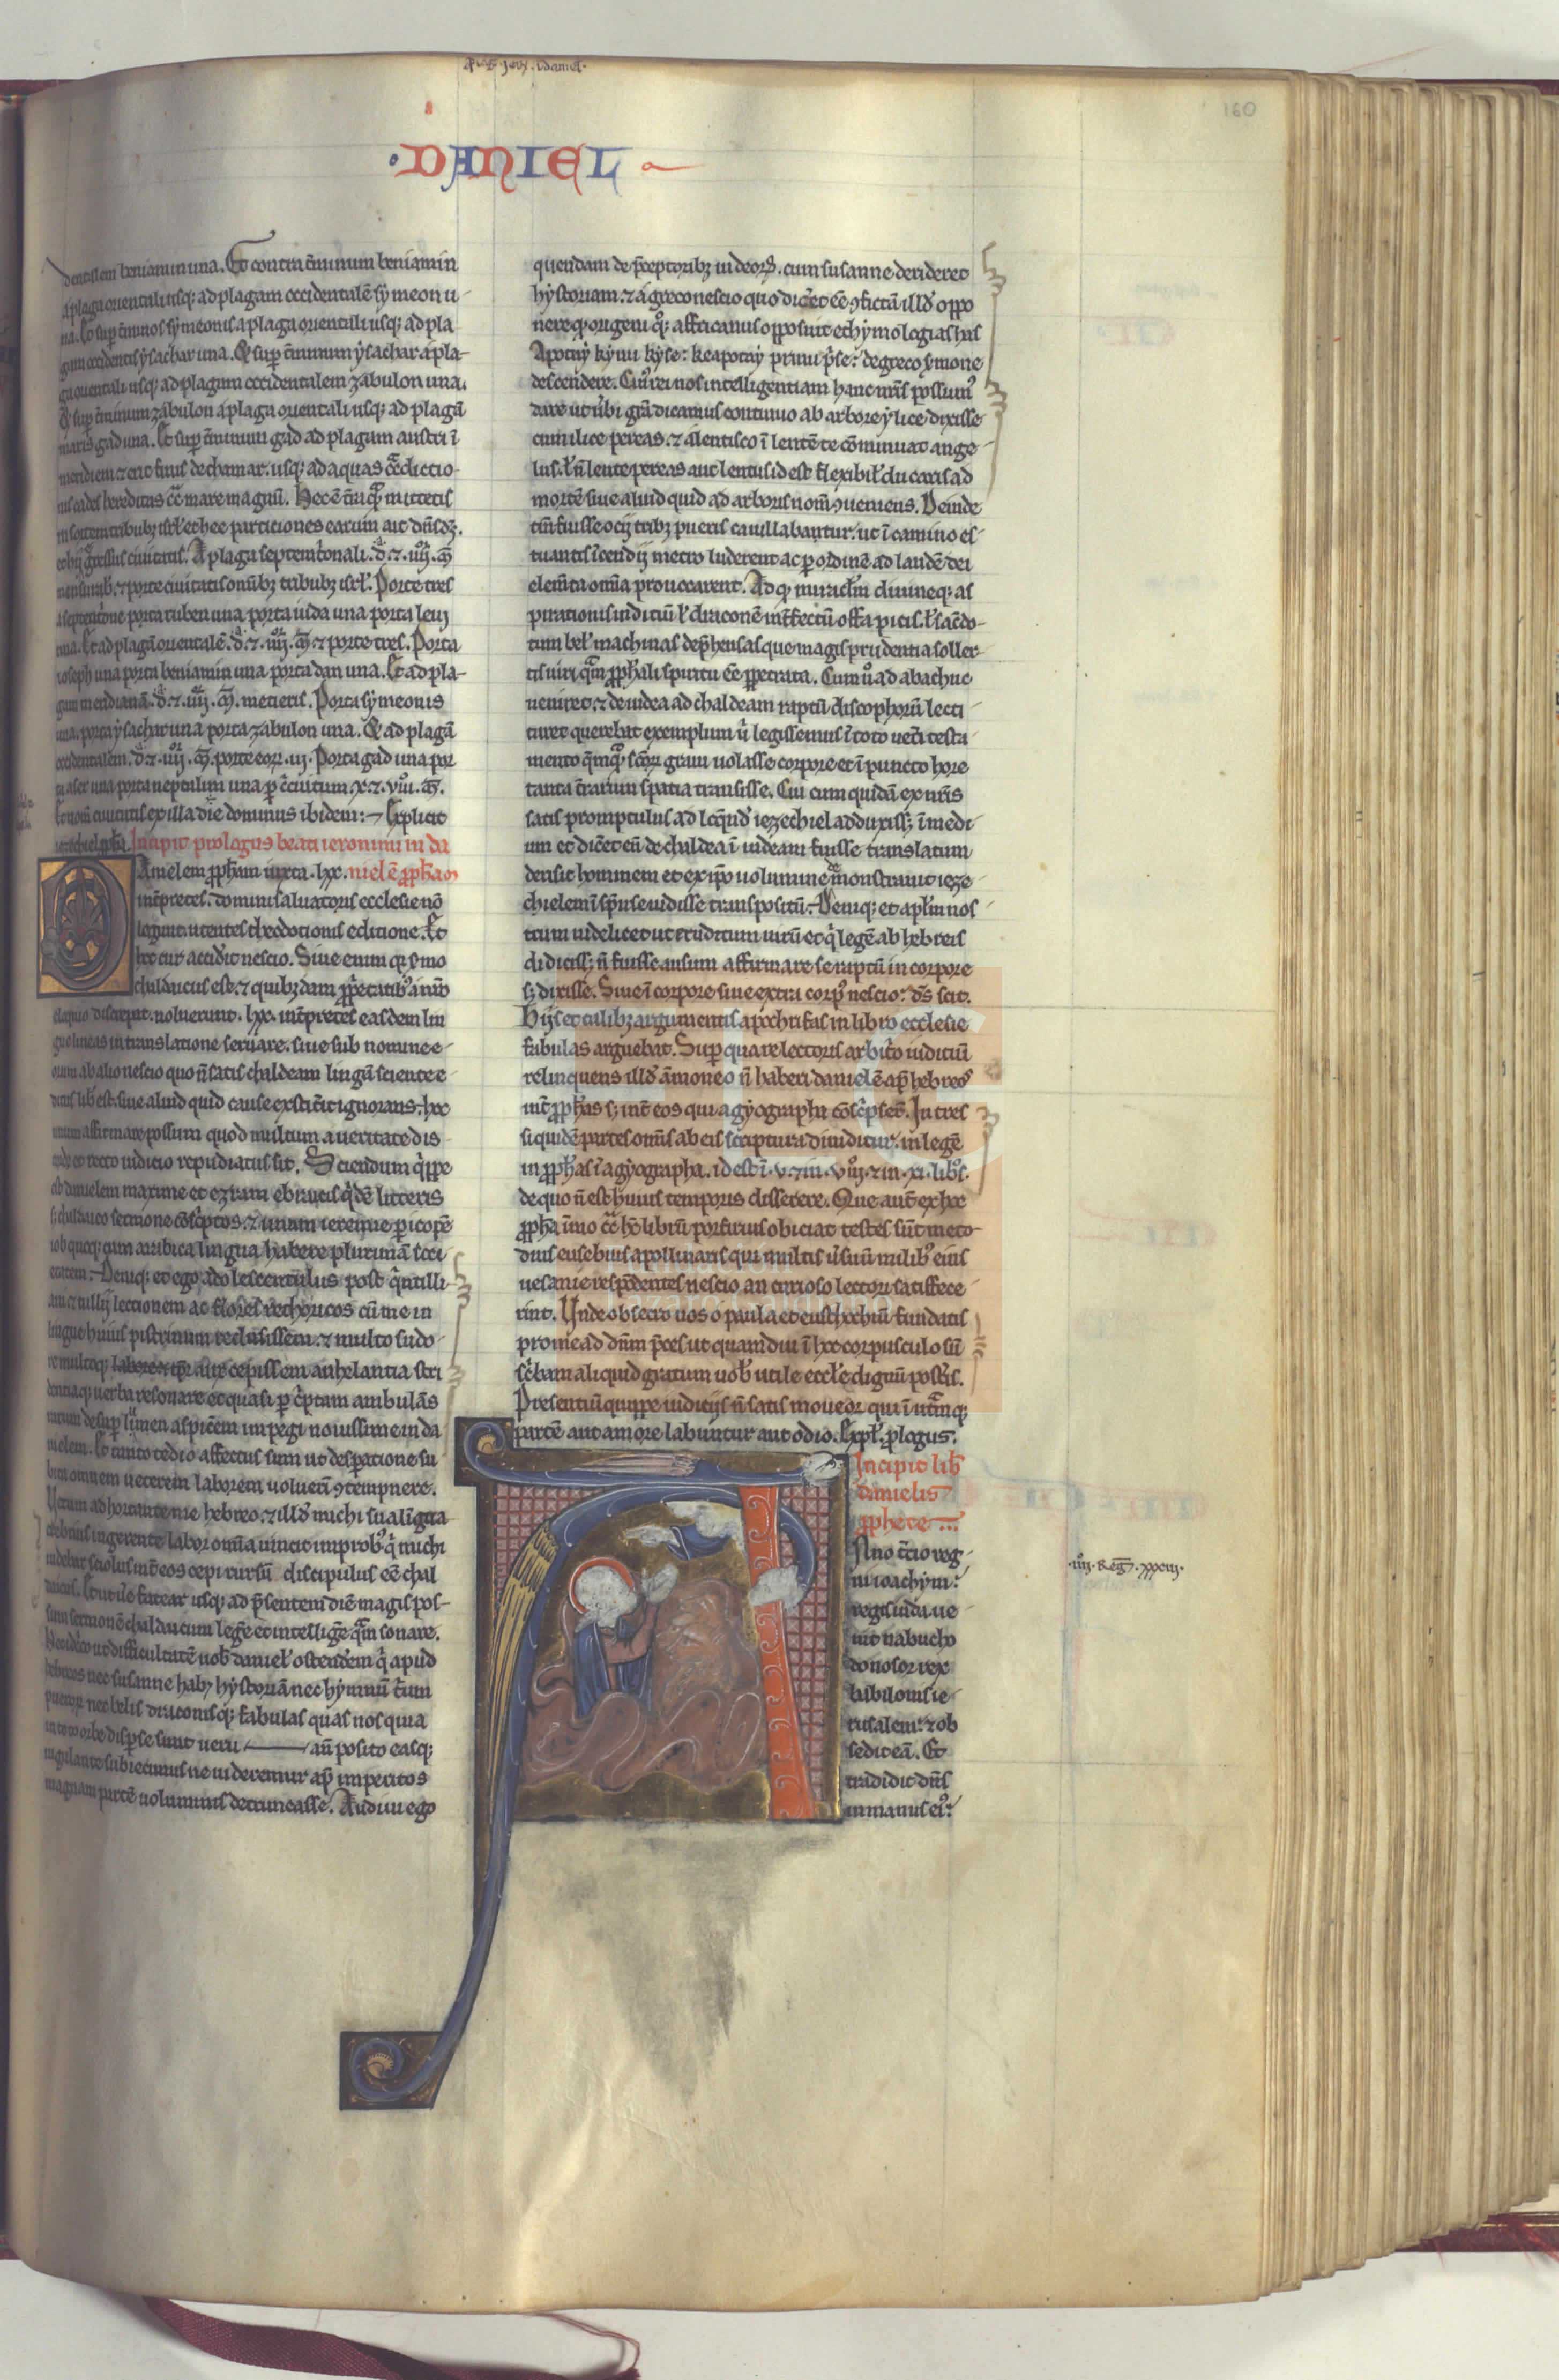 160
·DANIEL
dentalem beniamin una. Et contra t̄minum beniamin
a plaga orientali usq; ad plagam occidentalē symeon u
na. Et sup t̄minos symeonis a plaga orientali usq; ad pla
gam occidentis ysachar una. Et sup t̄minum ysachar a pla-
ga orientali usq; ad plagam occidentalem zabulon una.
Et sup t̄minum zabulon a plaga orientali usq; ad plagā
maris gad una. Et sup t̄minum gad ad plagam austri ī
meridiem: et erit finis de thamar. usq; ad aquas
hereditas mare magnū. Hec ē mittetis
in sortem tribubz isrł et hee partitiones earum ait dn̄s
civitatis. A plaga septemtrionali.
Porte tres
a septentrione porta ruben una porta iuda una porta leui
una. Et ad plagā orientalē. porte tres. Porta
ioseph una porta beniamin una porta dan una. Et ad pla-
gam meridianā. metieris. Porta symeonis
una. porta ysachar una porta zabulon una. Et ad plagā
occidentalem. porte eoꝝ .iij. Porta gad una por
ta aser una porta neptalim una p circuitum
Et nom̄ civitatis ex illa die dominus ibidem: Explicit
Incipit prologus beati ieronimi in da
DAnielem pph̄am iuxta .lxx. nielē pph̄am
int̄pretes. domini saluatoris ecclesie nō
legunt. utentes theodotionis editione. Et
hoc cur accid̄it nescio. Siue enim qr s̄mo
chaldaicus est: et quibzdam ppetatibꝰ a nr̄o
eloquio discrepat. noluerunt .lxx. int̄pretes easdem lin
gue lineas in translatione seruare. siue sub nomine e
orum ab alio nescio quo n̄ satis chaldeam linguā sciente e
ditus lib̄ est. siue aliud quid cause exstit̄it ignorans. hoc
unum affirmare possum quod multum a ueritate dis
recto iudicio repudiatus sit. Sciendum q̄ppe
danielem maxime et ezram ebraicis q̄dē litteris
s; chaldaico sermone cōsc̄ptos. et unam ieremie pericopē
iob quoq; cum arabica lingua habere plurimā soci
etatem. Deniq; et ego adolescentulus post q̄ntilli
ani et tullij lectionem ac flores rethoricos cū me in
lingue huius pistrinum reclusissem. et multo sudo
re multoq; cepissem anhelantia stri
dentiaq; uerba resonare et quasi p c̄ptam ambulās
rarum desup lumen aspicēem impegi nouissime in da
nielem. Et tanto tedio affectus sum ut desperatione su
bita omnem ueterem laborem uoluerī ɔtempnere.
Verum adhortante me hebreo. et illd̄ michi sua līgua
crebrius ingerente labor omīa uincit improbꝰ q̄ michi
uidebar sciolus int̄ eos cepi rursū discipulus eē chal
daicus. Et ut ūe fatear usq; ad p̄sentem diē magis pos-
sum sermonē chaldaicum leḡe et intelliḡe q̄m sonare.
Hec idcirco ut difficultatē uob̄ danieł ostend̄em q̄ apud
hebreos nec susanne habꝫ hystoriā nec hymnū t̄um
pueroꝝ nec belis draconisq; fabulas quas nos quia
in toto orbe disp̄se sunt ueru — an̄ posito easq;
iugulante subiecimus ne uideremur ap̄ imperitos
magnam partē uoluminis detruncasse. Audiui ego
quendam de p̄ceptoribz iudeoꝝ. cum susanne derideret
hystoriam. et a greco nescio quo dic̄et eē ɔfictā illd̄ oppo
nereq; origeni qꝰ; affricanus opposuit ethymologias has
Apotoy kynu kyse: ke apotoy prinu p̄se: de greco s̄mone
descendere. Cuiꝰ rei nos intelligentiam hanc nr̄is possumꝰ
dare ut ūbi grā dicamus continuo ab arbore ylice dixisse
eum ilice pereas. et a lentisco ī lentē te cōminuat ange
lus. ł n̄ lente pereas aut lentus id est flexibił ducaris ad
mortē siue aliud quid ad arboris nom̄ ɔueniens. Deinde
tm̄ fuisse ocij tribz pueris cauillabantur. ut ī camino es
tuantis īcendij metro luderent ac p ordinē ad laudē dei
elem̄ta omīa prouocarent. Ad q; miracłm diuineq; as
pirationis inditiū ł draconē int̄fectū offa picis. ł sac̄do-
tum beł machinas dep̄hensas que magis prudentia soller
tis uiri q̄m pph̄ali spiritu eē ppetrata. Cum ū ad abachuc
ueniret. et de iudea ad chaldeam raptū discophorū lecti
taret querebat exemplum ū legissemus ī toto uet̄i testa
mento scōꝝ graui uolasse corpore et ī puncto hore
tanta t̄rarum spatia transisse. Cui cum quidā ex nr̄is
satis promptulus ad loq̄nd̄ iezechiel adduxiss; ī medi
um et dic̄et eū de chaldea ī iudeam fuisse translatum
derisit hominem et ex ipo uolumine demonstrauit ieze
chielem ī sp̄u se uidisse transpositū. Deniq; et aptm nos
trum uidelicet ut eruditum uirū et q̄ legē ab hebreis
didiciss; n̄ fuisse ausum affirmare se raptū in corpore
s; dixisse. Siue ī corpore siue extra corpꝰ nescio: ds̄ scit.
Hijs et talibz argumentis apocrifas in libro ecclesie
fabulas arguebat. Sup qua re lectoris arbit̄o iuditiū
relinquens illd̄ āmoneo n̄ haberi danielē ap̄ hebreos
int̄ pph̄as s; int̄ eos qui agyographa cōsc̄psert̄. In tres
siquidē partes omīs ab eis scriptura diuiditur. in legē
in pph̄as ī agyographa. id est ī .v. et in .viij. et in .xi. libꝰs.
de quo n̄ est huius temporis disserere. Que aut̄ ex hoc
pph̄a īmo librū porfirius obiciat testes sūt meto-
dius eusebius apollinaris qui multis ūsuū milibꝰ eius
uesanie respōdentes nescio an curioso lectori satisfece
rint. Unde obsecro uos o paula et eustochiū fundatis
pro me ad dn̄m p̄ces ut quamdiu ī hoc corpusculo sū
sc̄bam aliquid gratum uob̄ utile ecctē dignū post̄is.
Presentiū quippe iudicijs n̄ satis moueor qui ī ut̄mq;
partē aut amore labuntur aut odio. Expł. plogus.
Incipit lib̄
danielis
pphete
ANno t̄cio reg
ni ioachym:
regis iuda ue
nit nabucho
donosor rex
babilonis ie
rusalem: et ob
sedit eā. Et
tradidit dn̄s
in manus eiꝰ:
.iiij. Reḡ. xxiiij.